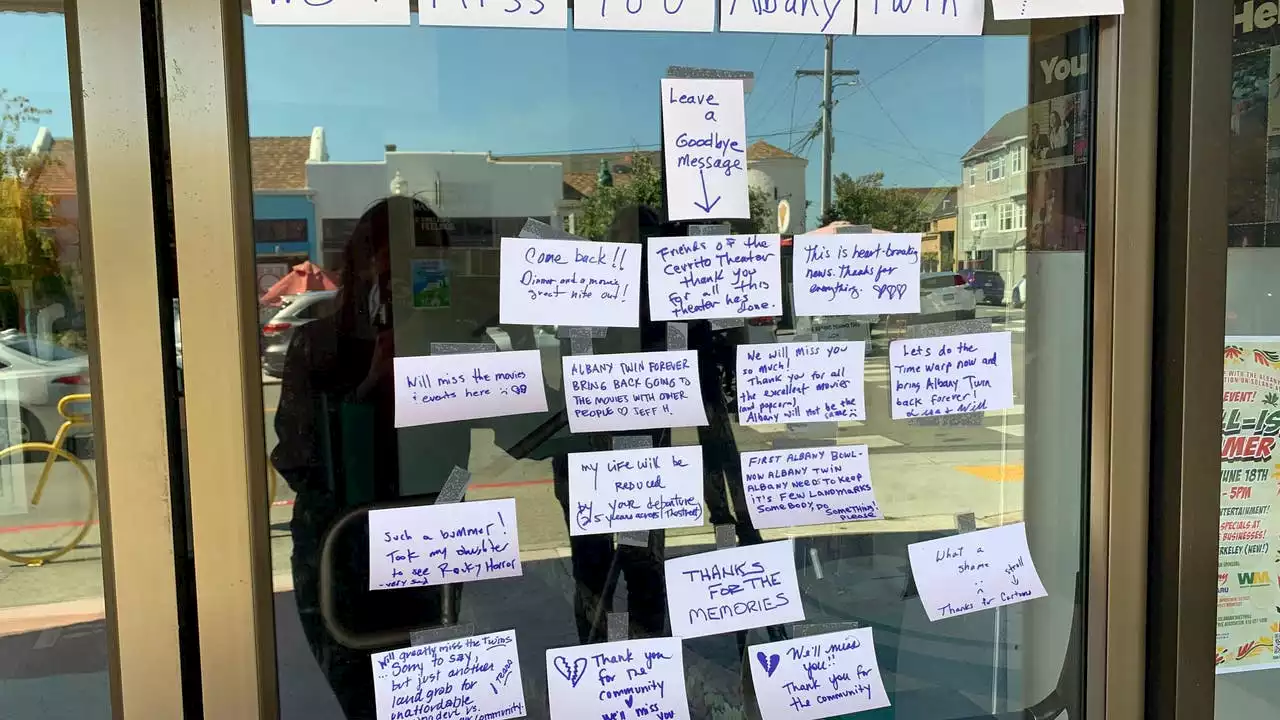 Miss You Albany Twin
You
He
Leave
a
Goodbye
Message
Come back!!
Dinner and a movie
great nite out!
Friends of the
Cerrito Theater
thank you
for all this
theater has
done.
This is heart-breaking
news. Thanks for
everything.
Will miss the movies
& events here
ALBANY TWIN FOREVER
BRING BACK GOING TO
THE MOVIES WITH OTHER
PEOPLE ♡ JEFF H.
We will miss you
so much!
Thank you for all
the excellent movies
(and popcorn)
Albany will not be the
same
Lets do the
Time Warp now and
bring Albany Twin
back forever!
my Life will be
Reduced
by your departure
(25 years across the street)
FIRST ALBANY BOWL-
NOW ALBANY TWIN
ALBANY NEEDS TO KEEP
IT'S FEW LANDMARKS
SOMEBODY, DO
SOMETHING!
PLEASE!
Such a bummer!
Took my daughter
to see Rocky Horror
- very sad
THANKS
FOR THE
MEMORIES
What a
shame
stroll
Thanks for Cartoons
Will greatly miss the Twins
... Sorry to say
but just another
land grab for
unaffordable
vs.
community.
Thank you
for the
community
We'll miss
you
We'll miss
you!!
Thank you for
the community
EVENT!
JUNE 18TH
- 5PM
ENTERTAINMENT!
SPECIALS AT
BUSINESSES!
(NEW!)
WM